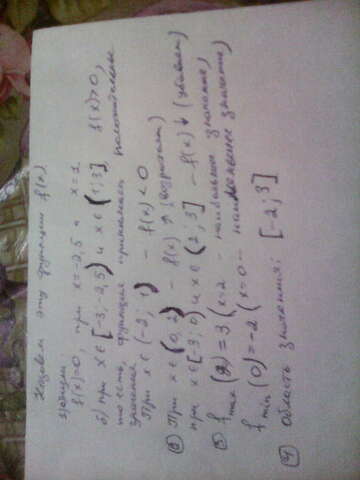 Назовем эту функцию f(x)
f(x)=0, при x=-2,5 и x=1
б) при x∈[-3;-2,5) и x∈(1;3] f(x)>0,
то есть, функция принимает положительные
значения
При x∈(-2; 1) – f(x)<0
② При x∈(0; 2) – f(x)↑ (возрастает)
при x∈[-3; 0) и x∈(2; 3] – f(x)↓ (убывает)
③ f max (2)=3 (x=2 – наибольшее значение)
f min (0)=-2 (x=0 – наименьшее значение)
④ Область значения: [-2; 3]